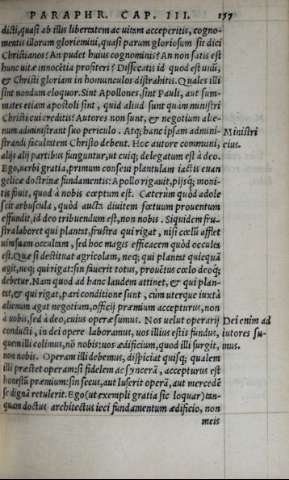 PARAPHR. CAP. III. 157
dicti, quasi ab illis libertatem ac uitam acceperitis, cogno-
mentis illorum gloriemini, quasi parum gloriosum sit dici
Christianos? An pudet huius cognominis? An non satis est
hunc uitæ innocētia profiteri? Dissecatis id quod est unū,
& Christi gloriam in homunculos distrahitis. Quales illi
sint nondum eloquor. Sint Apollones, sint Pauli, aut sum-
mates etiam apostoli sint, quid aliud sunt quàm ministri
Christi cui creditis? Autores non sunt, & negotium alie-
num administrant suo periculo. Atq; hanc ipsam admini- Ministri
strandi facultatem Christo debent. Hoc autore communi, eius.
alijs alij partibus funguntur, ut cuiq; delegatum est à deo.
Ego, uerbi gratia, primum conseui plantulam iactis euan
gelicæ doctrinæ fundamentis: Apollo rigauit, pijsq; moni-
tis fouit, quod à nobis cœptum est. Cæterùm quòd adole
scit arbuscula, quòd aucta diuitem fœtuum prouentum
effundit, id deo tribuendum est, non nobis. Siquidem fru-
stra laboret qui plantet, frustra qui rigat, nisi cœlū afflet
uim suam occultam, sed hoc magis efficacem quòd occulta
est. Quæ si destituat agricolam, neq; qui plantet quicquā
agit, neq; qui rigat: sin fiuerit totus, prouētus cœlo deoq;
debetur. Nam quod ad hanc laudem attinet, & qui plan-
tet, & qui rigat, pari conditione sunt, cùm uterque iuxtà
alienum agat negotium, officij præmium accepturus, non
à uobis, sed à deo, cuius operæ sumus. Nos uelut operarij Dei enim ad
conducti, in dei opere laboramus, uos illius estis fundus, iutores su-
quem illi colimus, nō nobis: uos ædificium, quod illi surgit, mus.
non nobis. Operam illi debemus, dispiciat quisq; qualem
illi præstet operam: si fidelem ac synceră, accepturus est
honestū præmium: sin secus, aut luserit operā, aut mercedē
se dignā retulerit. Ego (ut exempli gratia sic loquar) tan-
quam doctus architectus ieci fundamentum ædificio, non
meis